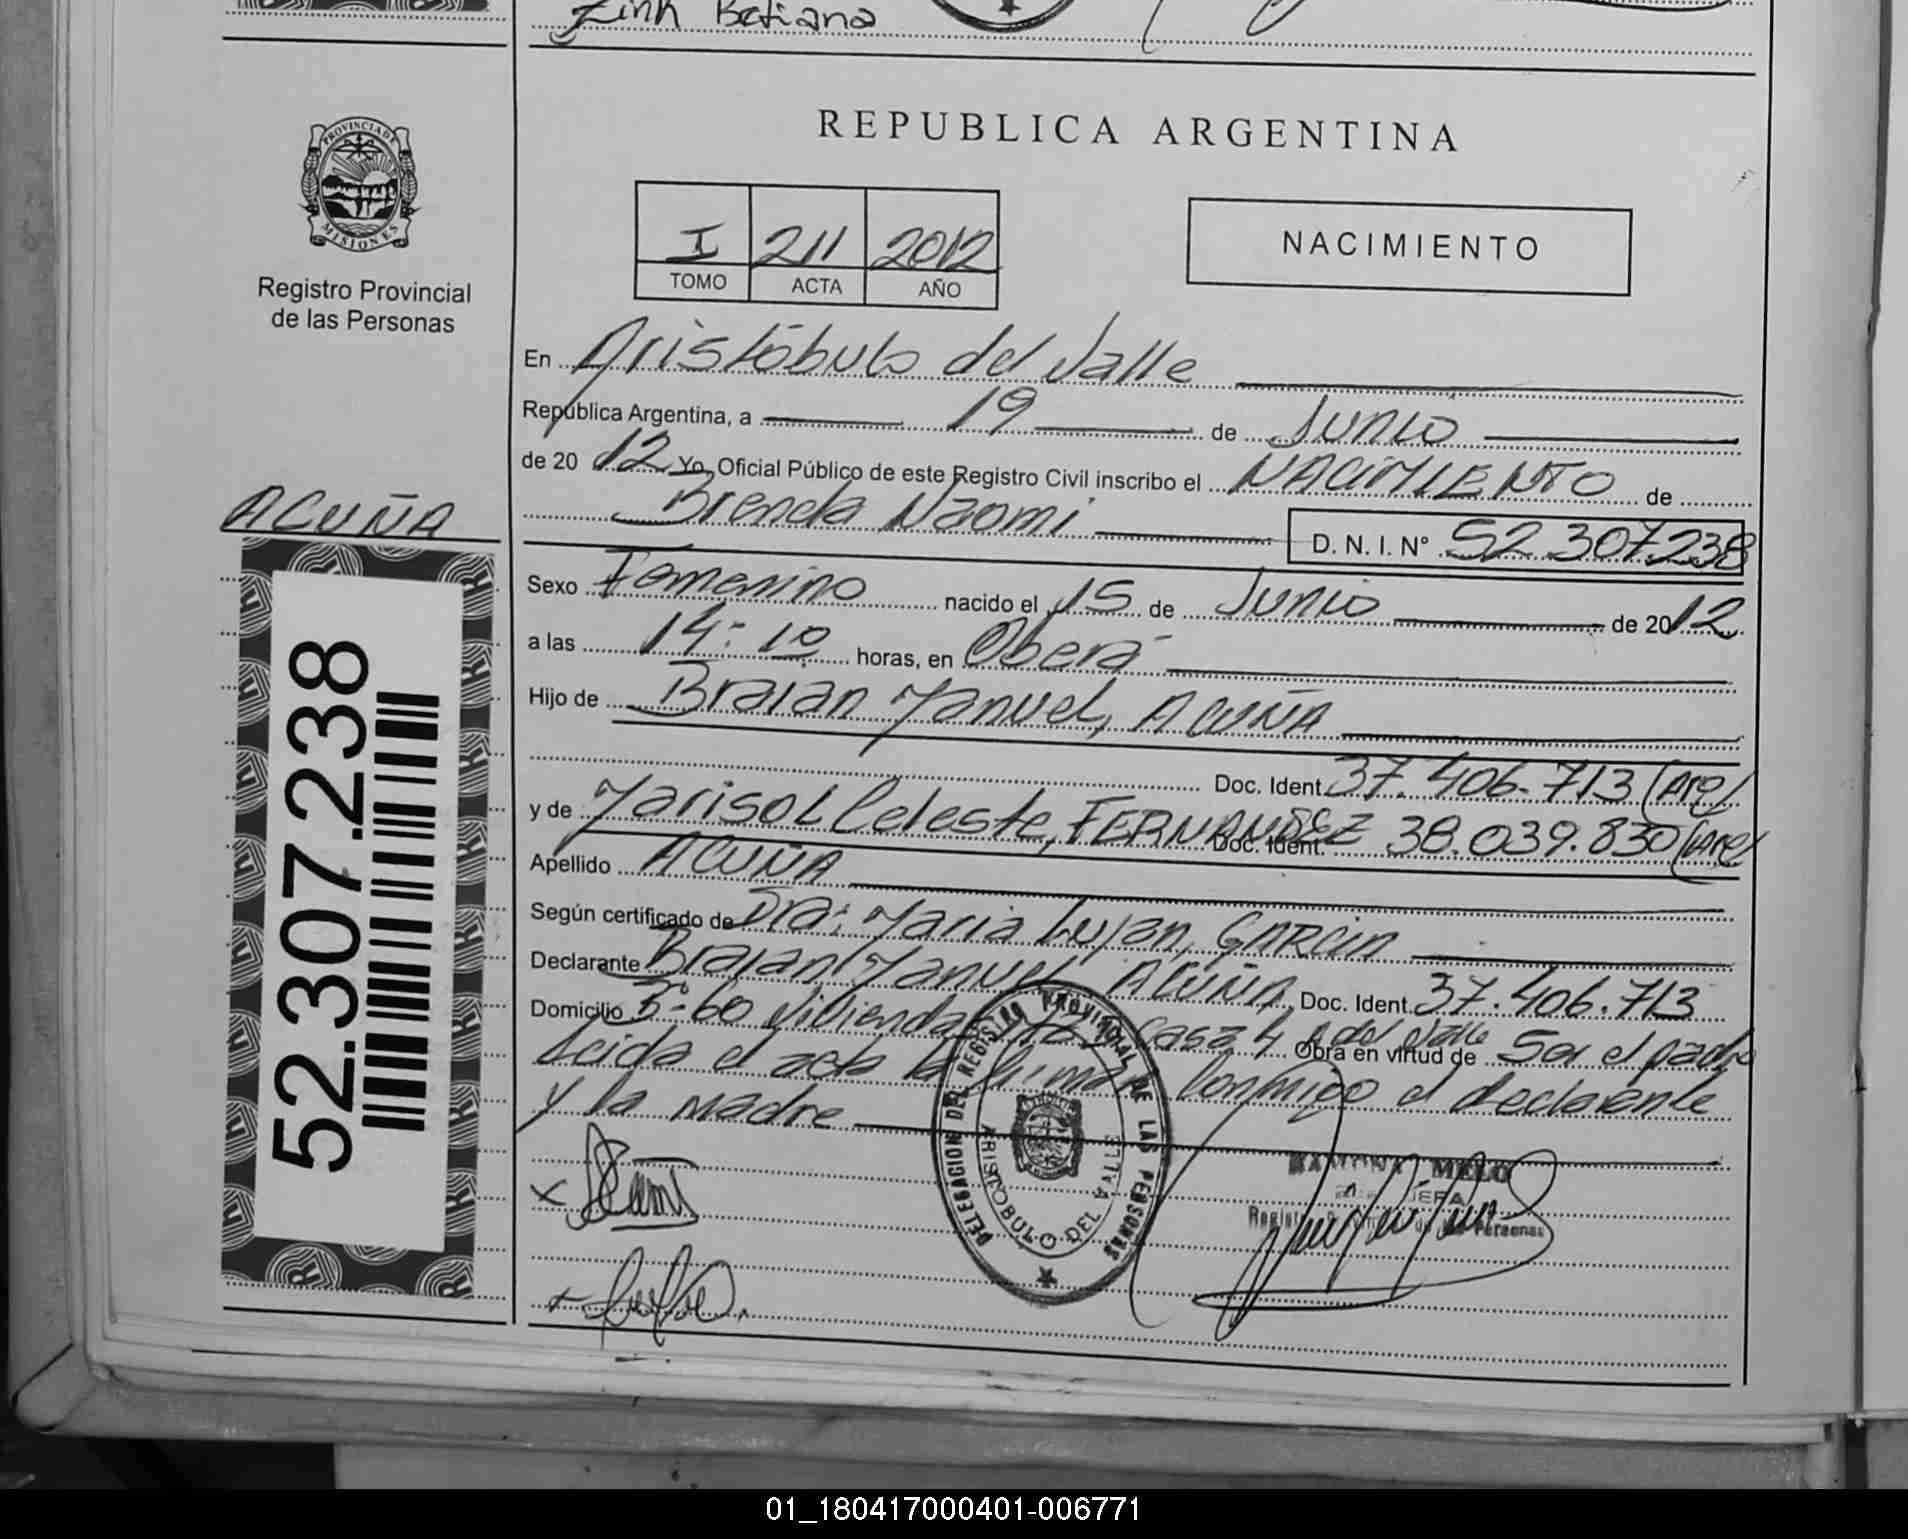 Zinn Betiana
PROVINCIA D
MISIONES
Registro Provincial
de las Personas
REPUBLICA ARGENTINA
I 211 2012
TOMO ACTA AÑO
NACIMIENTO
En Aristóbulo del Valle
República Argentina, a 19 de Junio
de 20 12 Yo, Oficial Público de este Registro Civil inscribo el NACIMIENTO de
Brenda Naomi
D. N. I. Nº 52.307.238
ACUÑA
52.307.238
Sexo Femenino nacido el 15 de Junio de 20 12
a las 14:10 horas, en Oberá
Hijo de Braian Manuel, ACUÑA
Doc. Ident. 37.406.713 (Arg)
y de Marisol Celeste, FERNANDEZ Doc. Ident. 38.039.830 (Arg)
Apellido ACUÑA
Según certificado de Dra: Maria Lujan, GARCIA
Declarante Braian Manuel ACUÑA Doc. Ident. 37.406.713
Domicilio Bº 60 Viviendas Casa 4 A del Valle Obra en virtud de Ser el padre
Leida el acta la firman Conmigo el declarante
y la madre
DELEGACION DEL REGISTRO PROVINCIAL DE LAS PERSONAS
ARISTOBULO DEL VALLE
RAMONA MELO
01_180417000401-006771